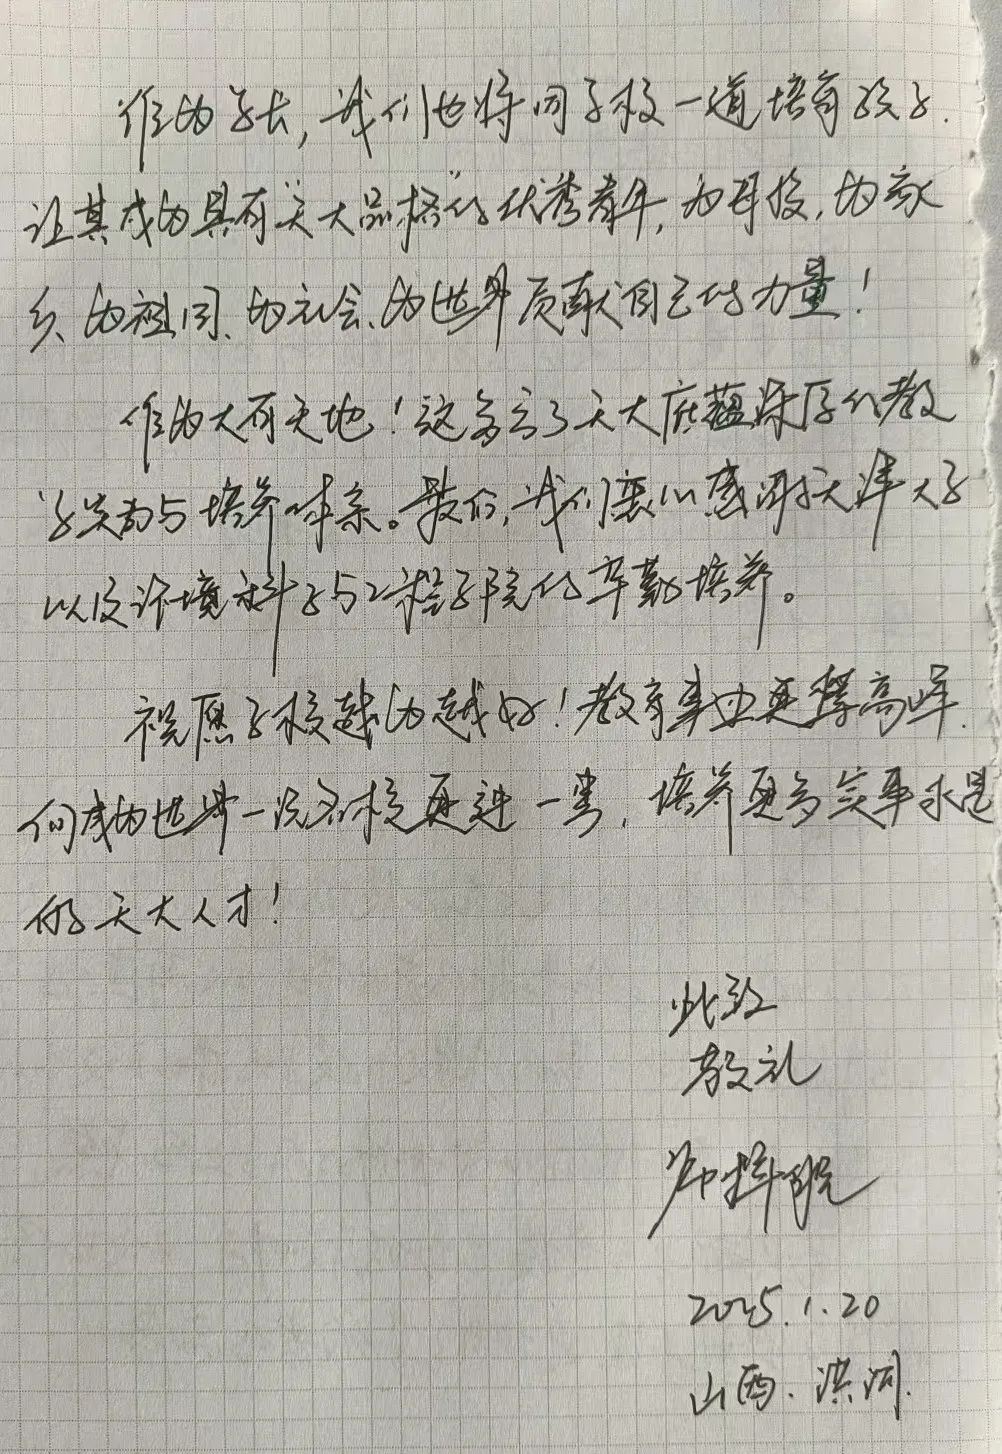 作为家长,我们也将同学校一道培育孩子.
让其成为具有“天大品格”的优秀青年,为母校,为家
乡、为祖国、为社会、为世界贡献自己的力量!
作为大有天地!这多亏了天大底蕴深厚的教
学与培养体系。最后,我们衷心感谢天津大学
以及环境科学与工程学院的辛勤培养。
祝愿学校越办越好!教育事业更攀高峰.
向成为世界一流名校更进一步,培养更多实事求是
的天大人才!
此致
敬礼
2025.1.20
山西.洪洞.